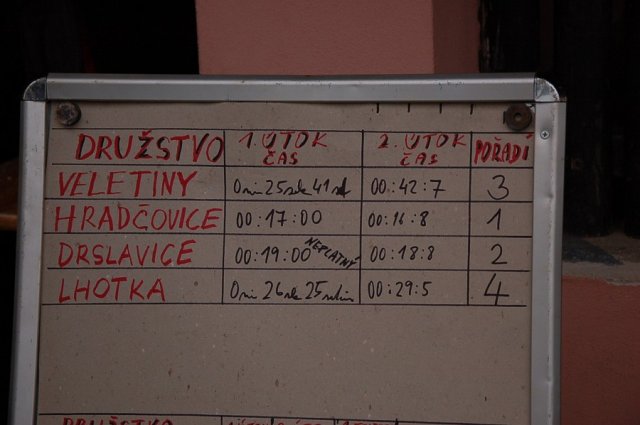 DRUŽSTVO 1. ÚTOK ČAS 2. ÚTOK ČAS POŘADÍ
VELETINY 0 min 25 sek 41 00:42:7 3
HRADČOVICE 00:17:00 00:16:8 1
DRSLAVICE 00:19:00 NEPLATNÝ 00:18:8 2
LHOTKA 0 min 26 sek 25 00:29:5 4
DRUŽSTVO